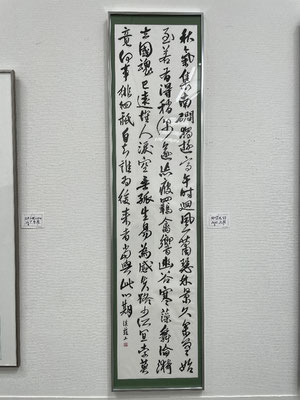 秋氣集南磵獨遊亭午時迴風一蕭瑟林景久參差始
至若有得稍深遂忘疲羈禽響幽谷寒藻舞淪漪
去國魂已遠懷人淚空垂孤生易為感失路少所宜索莫
竟何事徘徊祇自知誰為後來者當與此心期